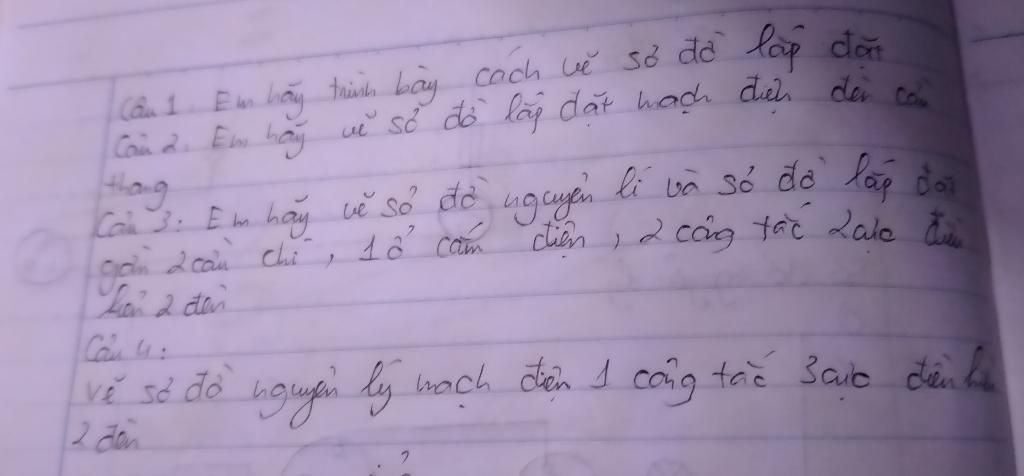 Câu 1. Em hãy trình bày cách vẽ sơ đồ lắp đặt
Câu 2. Em hãy vẽ sơ đồ lắp đặt mạch điện đèn cầu
thang
Câu 3: Em hãy vẽ sơ đồ nguyên lí và sơ đồ lắp đặt
gồm 2 cầu chì, 1 ổ cắm điện, 2 công tắc 2 cực điều
khiển 2 đèn
Câu 4:
Vẽ sơ đồ nguyên lý mạch điện 1 công tắc 3 cực điều khiển
2 đèn